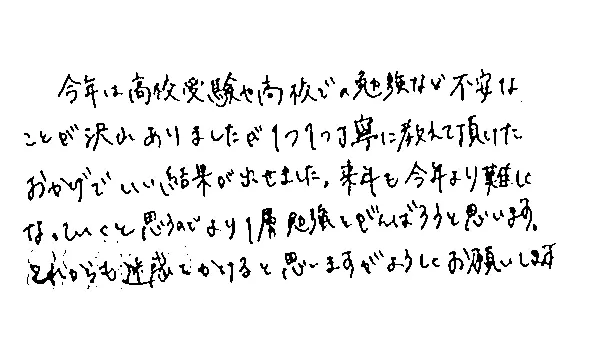 今年は高校受験や高校での勉強など不安な
ことが沢山ありましたが1つ1つ丁寧に教えて頂けた
おかげでいい結果が出せました。来年も今年より難しく
なっていくと思うのでより1層勉強をがんばろうと思います。
これからも迷惑をかけると思いますがよろしくお願いします